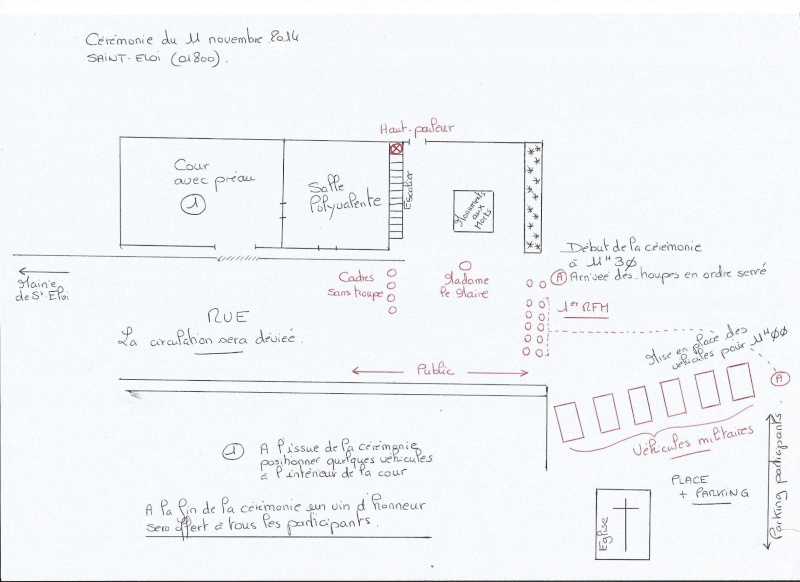 Cérémonie du 11 novembre 2014
SAINT-ELOI (01800).
Haut-parleur
Cour
avec préau
1
Salle
Polyvalente
Escalier
Monuments
aux
Morts
Début de la cérémonie
à 11H3Ø
A Arrivée des troupes en ordre serré
Mairie
de St-Eloi
Cadres
sans troupe
Madame
le Maire
1er RFM
RUE
La circulation sera déviée.
Mise en place des
véhicules pour 11HØØ
Public
A
Véhicules militaires
1 A l'issue de la cérémonie
positionner quelques véhicules
à l'intérieur de la cour
PLACE
+ PARKING
Parking participants
Eglise
A la fin de la cérémonie un vin d'honneur
sera offert à tous les participants.